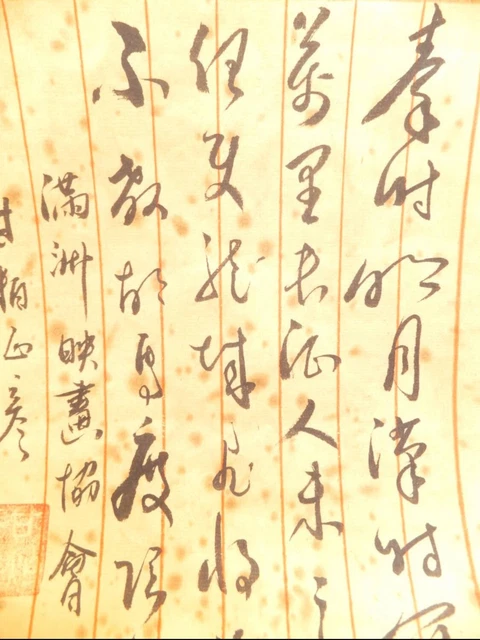 秦時明月漢時
萬里長征人未
但使龍城飛将
不教胡馬度陰
滿洲映畫協會
甘粕正彦